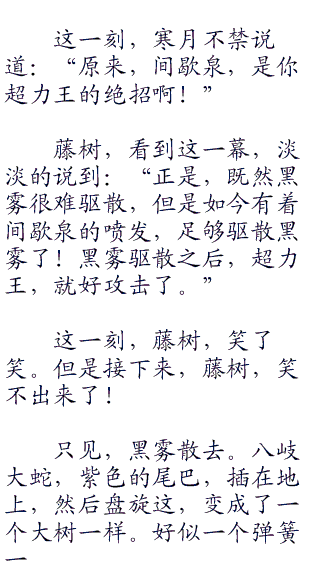 这一刻，寒月不禁说
道：“原来，间歇泉，是你
超力王的绝招啊！”
藤树，看到这一幕，淡
淡的说到：“正是，既然黑
雾很难驱散，但是如今有着
间歇泉的喷发，足够驱散黑
雾了！黑雾驱散之后，超力
王，就好攻击了。”
这一刻，藤树，笑了
笑。但是接下来，藤树，笑
不出来了！
只见，黑雾散去。八岐
大蛇，紫色的尾巴，插在地
上，然后盘旋这，变成了一
个大树一样。好似一个弹簧
一